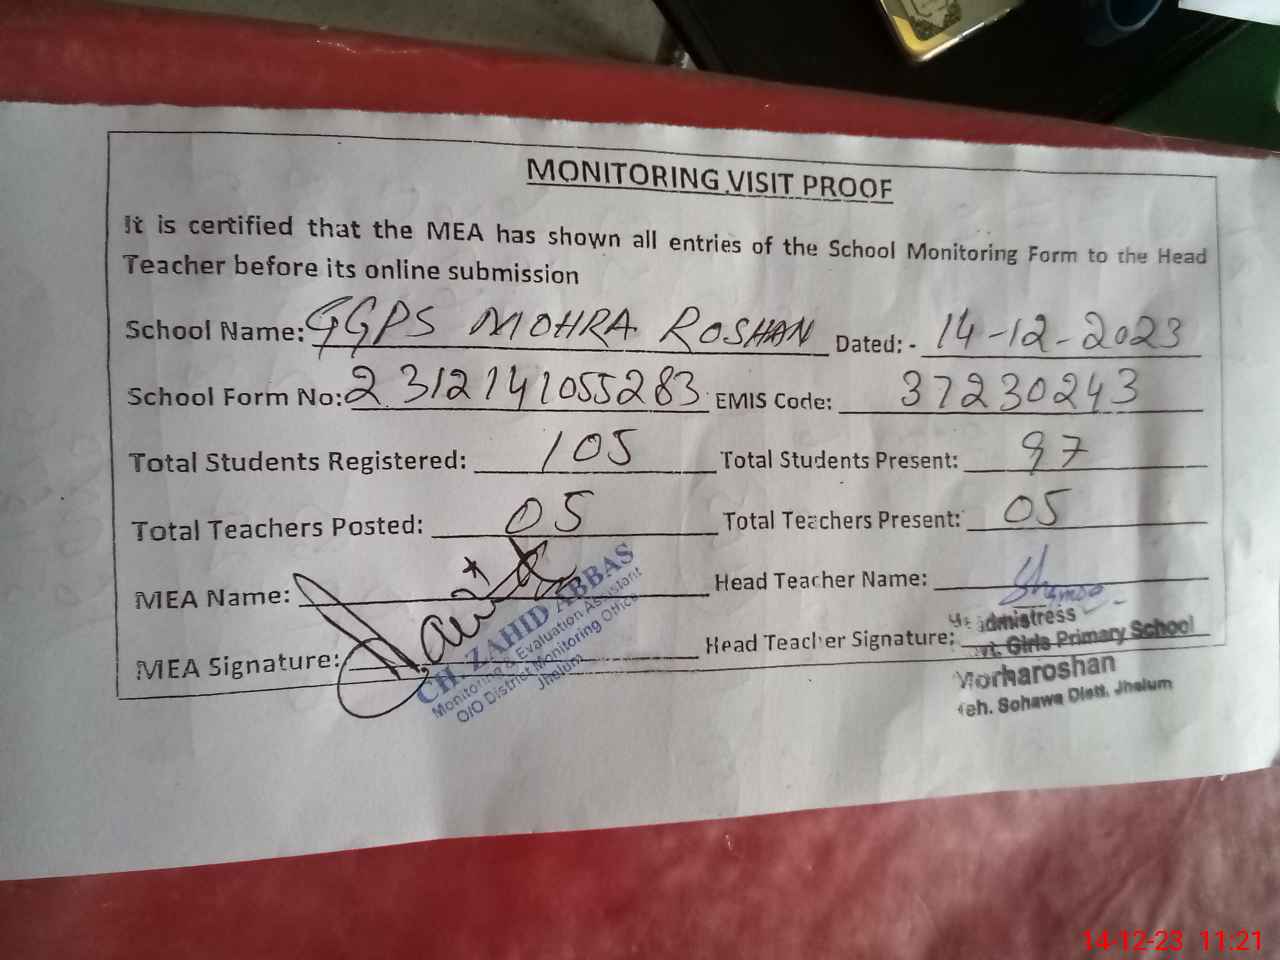 MONITORING VISIT PROOF
It is certified that the MEA has shown all entries of the School Monitoring Form to the Head
Teacher before its online submission
School Name: GGPS MOHRA ROSHAN Dated: - 14-12-2023
School Form No: 2312141055283 EMIS Code: 37230243
Total Students Registered: 105 Total Students Present: 97
Total Teachers Posted: 05 Total Teachers Present: 05
MEA Name: Head Teacher Name:
MEA Signature: Head Teacher Signature:
CH. ZAHID ABBAS
Monitoring & Evaluation Assistant
O/O District Monitoring Office
Jhelum
Headmistress
Govt. Girls Primary School
Morharoshan
Teh. Sohawa Distt. Jhelum
14-12-23 11:21